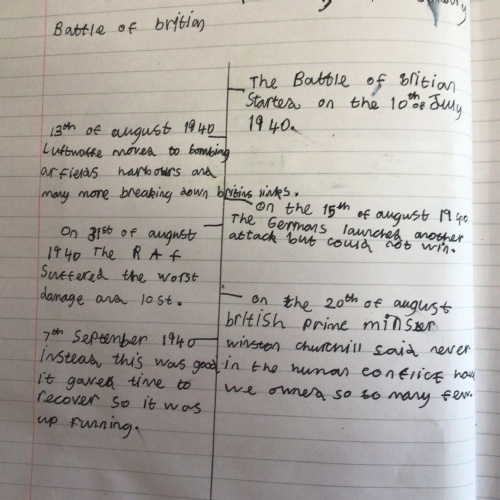 Battle of britian
The Battle of Britian
Started on the 10th of July
1940.
13th of august 1940
Luftwaffe moved to bombing
arfields harbours and
many more breaking down britins links.
On the 15th of august 1940
The Germans launched another
attack but could not win.
On 31st of august
1940 The RAf
Suffered the worst
damage and lost.
on the 20th of august
british prime minster
winston churchill said never
in the human conflict have
we owned so to many few.
7th September 1940
instead this was good
it gaved time to
recover so it was
up running.